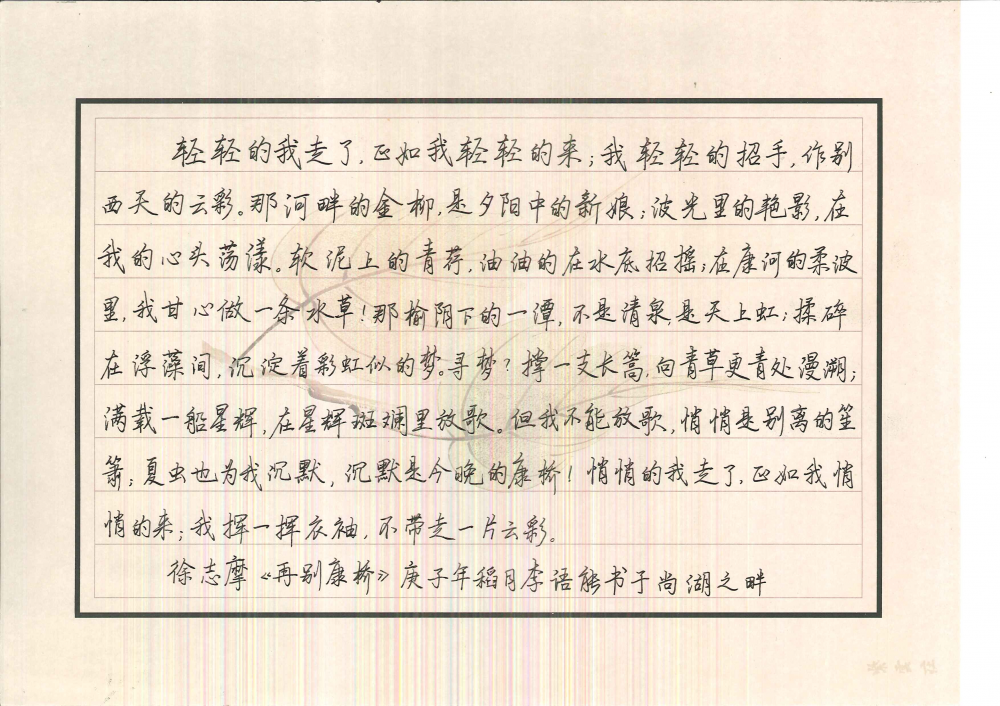 轻轻的我走了,正如我轻轻的来;我轻轻的招手,作别
西天的云彩。那河畔的金柳,是夕阳中的新娘;波光里的艳影,在
我的心头荡漾。软泥上的青荇,油油的在水底招摇;在康河的柔波
里,我甘心做一条水草!那榆阴下的一潭,不是清泉,是天上虹;揉碎
在浮藻间,沉淀着彩虹似的梦。寻梦?撑一支长篙,向青草更青处漫溯;
满载一船星辉,在星辉斑斓里放歌。但我不能放歌,悄悄是别离的笙
箫;夏虫也为我沉默,沉默是今晚的康桥!悄悄的我走了,正如我悄
悄的来;我挥一挥衣袖,不带走一片云彩。
徐志摩《再别康桥》庚子年稻月李语能书于尚湖之畔